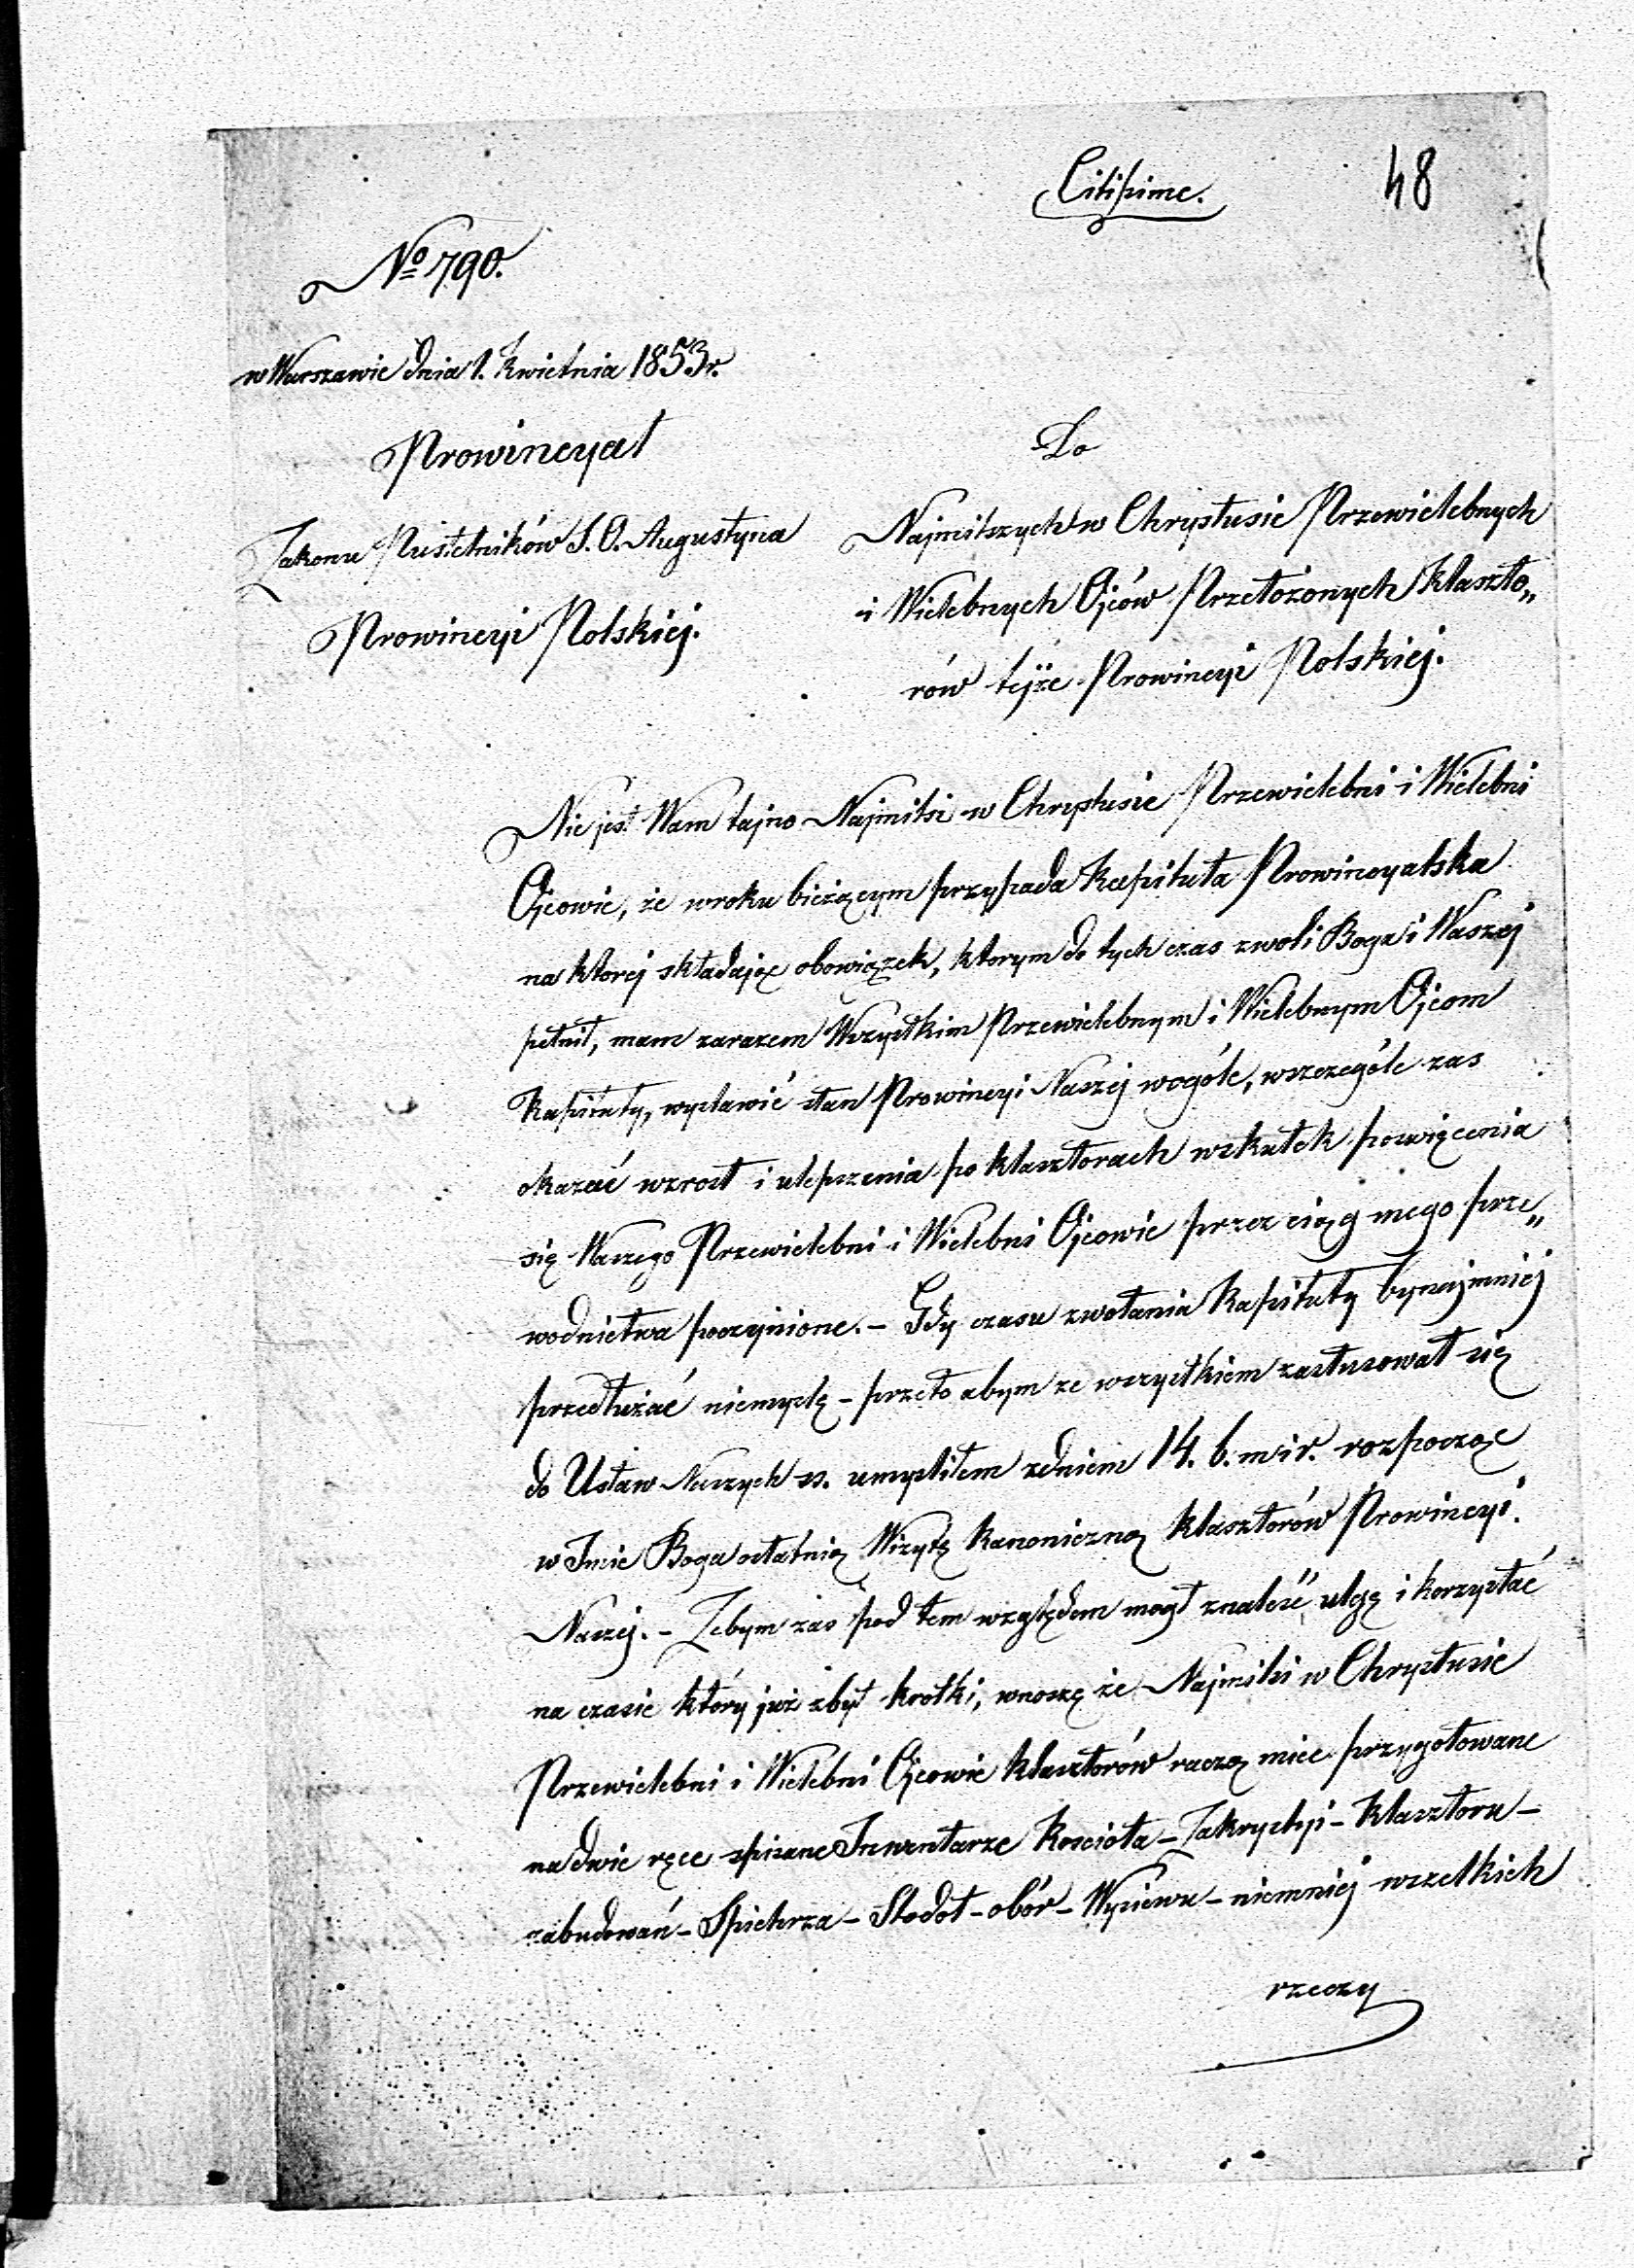 Citissime.
48
No 790.
w Warszawie dnia 1. Kwietnia 1853 r.
Prowincyał
Zakonu Pustelników S. O. Augustyna
Prowincyi Polskiej.
Do
Najmilszych w Chrystusie Przewielebnych
i Wielebnych Ojców Przełożonych Klaszto„
rów tejże Prowincyi Polskiej.
Nie jest Wam tajno Najmilsi w Chrystusie Przewielebni i Wielebni
Ojcowie, że w roku bieżącym przypada Kapituła Prowincyalska
na ktorej składając obowiązek, ktorym do tych czas z woli Boga i Waszej
pełnił, mam zarazem Wszystkim Przewielebnym i Wielebnym Ojcom
Kapituły, wystawić stan Prowincyi Naszej wogóle, wszczególe zas
okazać wzrost i ulepszenia po klasztorach wskutek poswięcenia
się Waszego Przewielebni i Wielebni Ojcowie przez ciąg mego prze„
wodnictwa poczynione. – Gdy czasu zwołania Kapituły bynajmniej
przedłużać niemyslę – przeto abym ze wszystkiem zastusował się
do Ustaw Naszych ss. umysliłem zdniem 14. b. m i r. rozpocząc
w Imie Boga ostatnią Wizytę Kanoniczną Klasztorów Prowincyi
Naszej. – Żebym zaś pod tem względem mogł znaleść ulgę i korzystać
na czasie który już zbyt krotki, wnoszę że Najmilsi w Chrystusie
Przewielebni i Wielebni Ojcowie klasztorów raczą miec przygotowane
na dwie ręce spisane Inwentarze Koscioła – Zakrystyi – Klasztoru –
zabudowań – Spichrza – Stodoł – obór – Wysiewu – niemniej wszelkich
rzeczy